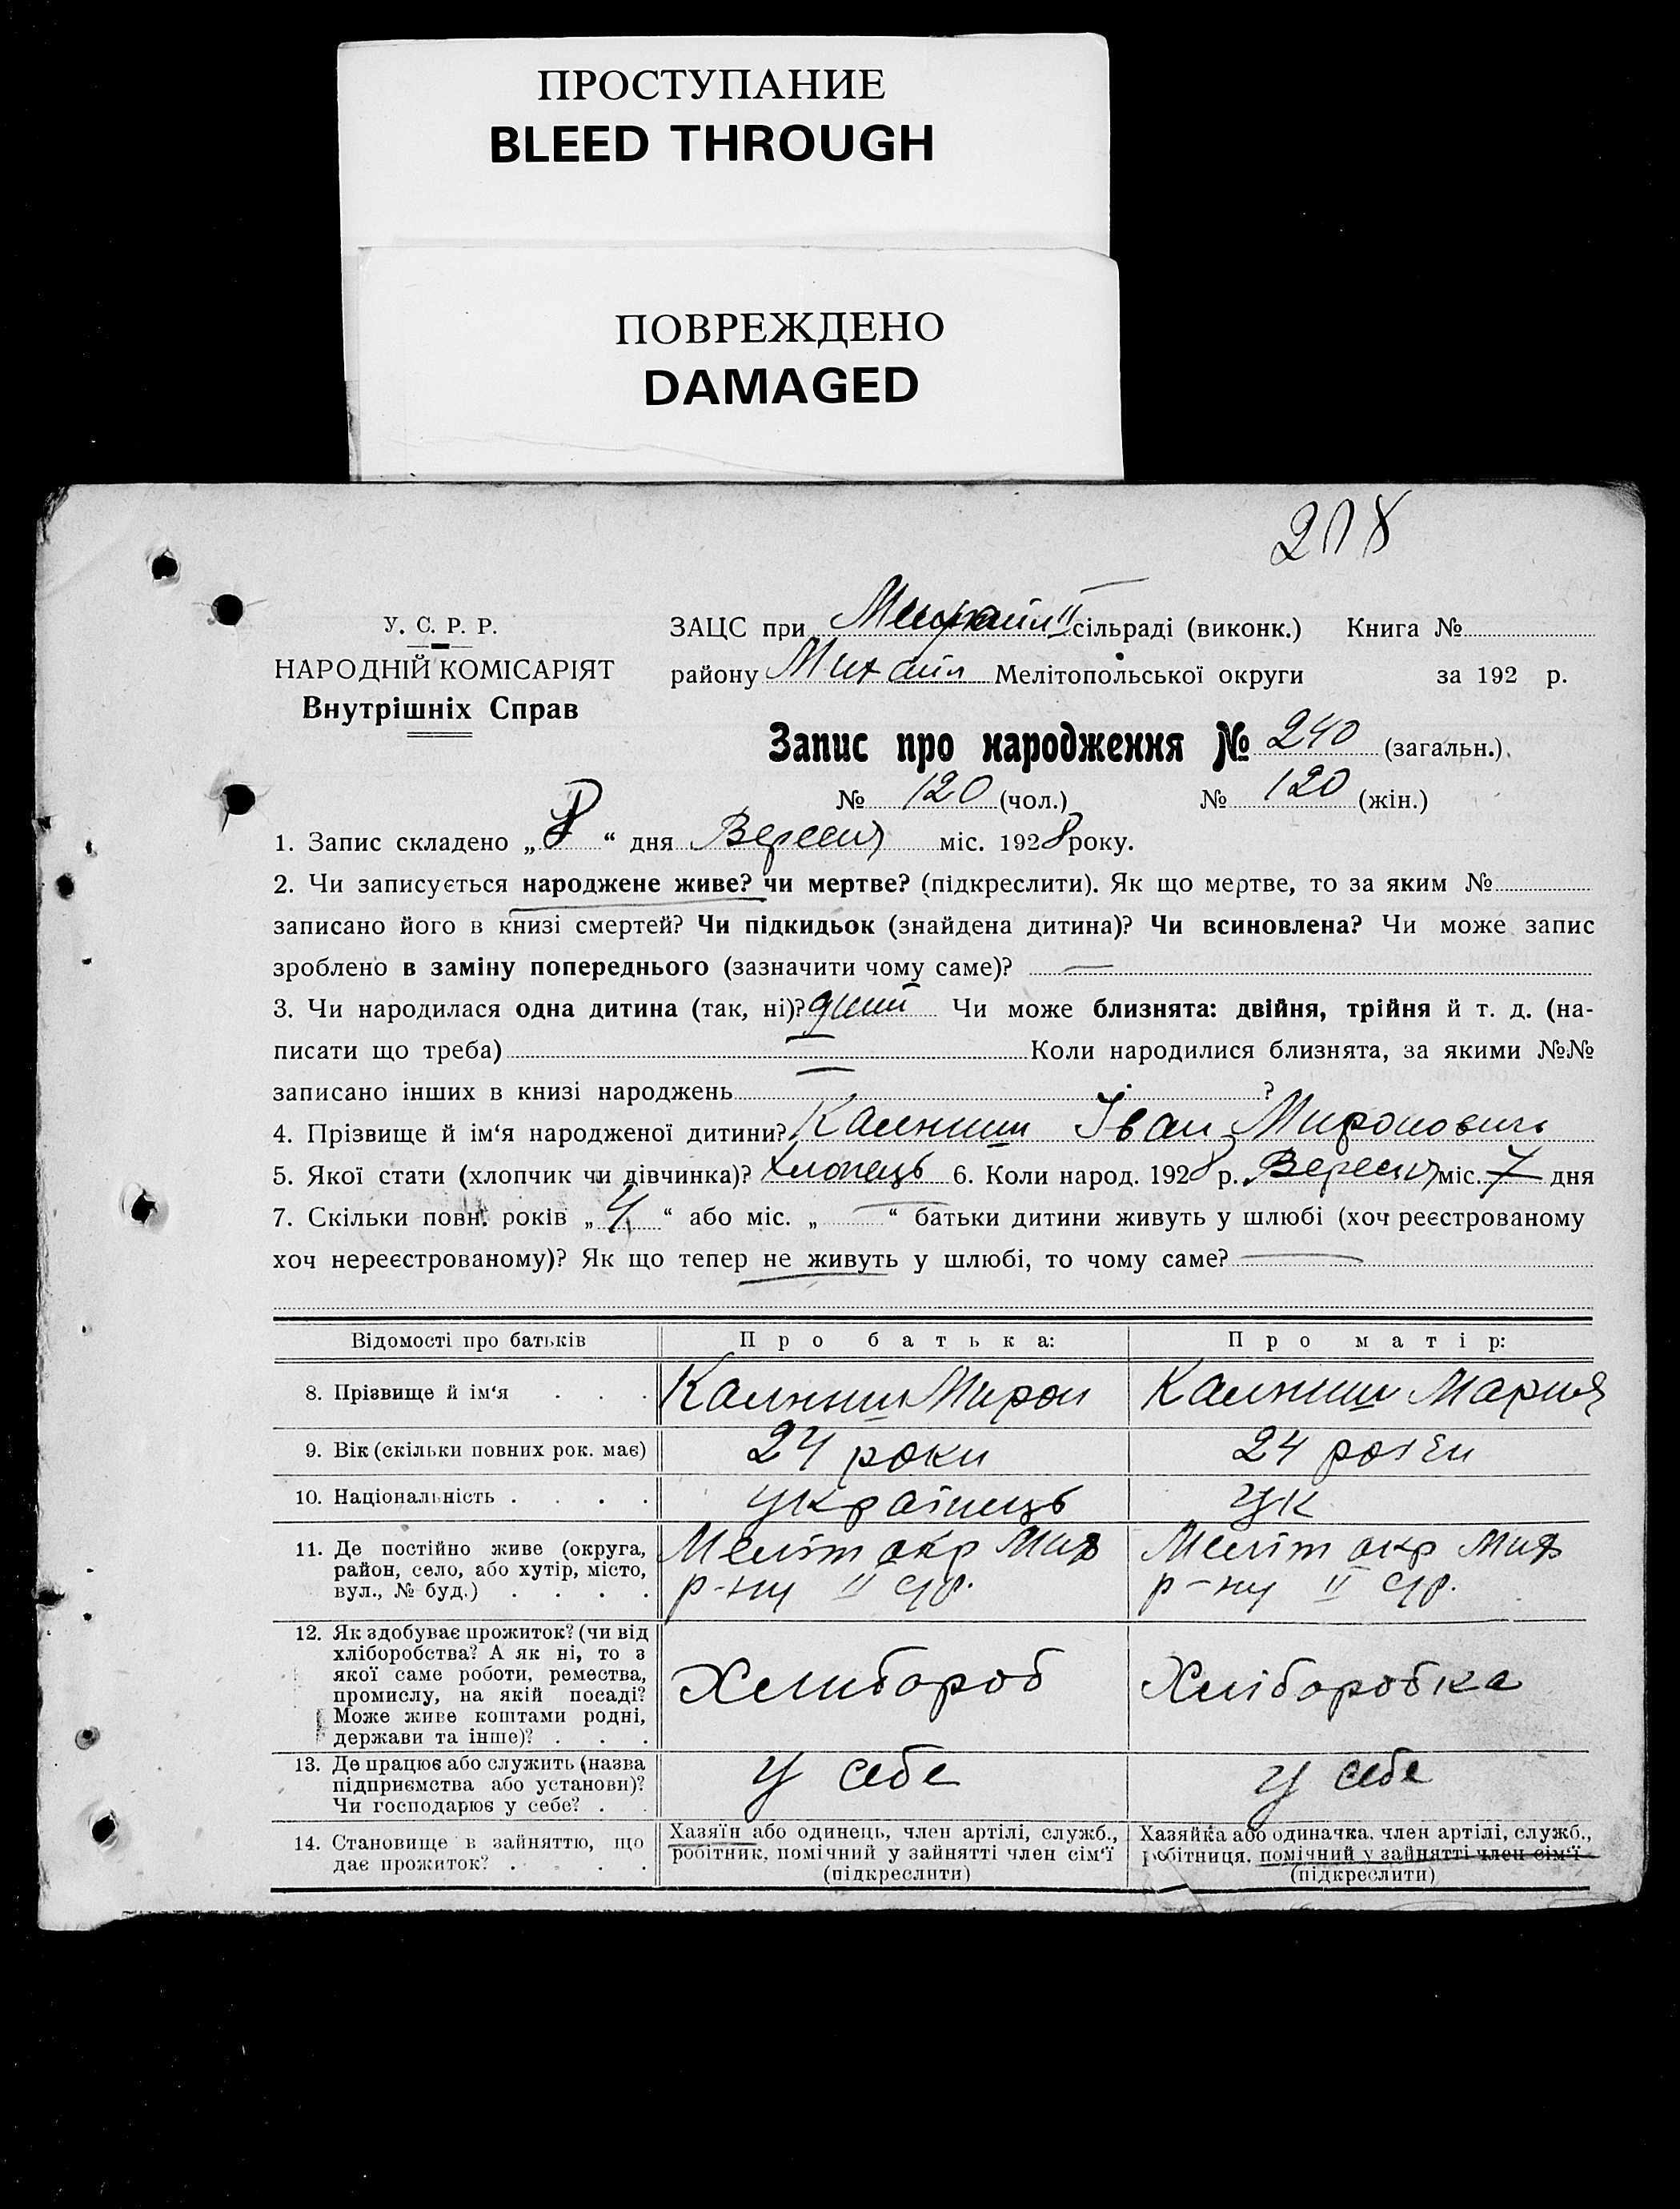 ПРОСТУПАНИЕ
BLEED THROUGH
ПОВРЕЖДЕНО
DAMAGED
208
У. С. Р. Р.
НАРОДНІЙ КОМІСАРІЯТ
Внутрішніх Справ
ЗАЦС при Михайл II сільраді (виконк.) Книга №
району Михайл Мелітопольської округи за 192 р.
Запис про народження № 240 (загальн.)
№ 120 (чол.) № 120 (жін.)
1. Запис складено „ 8 “ дня Вересня міс. 1928 року.
2. Чи записується народжене живе? чи мертве? (підкреслити). Як що мертве, то за яким №
записано його в книзі смертей? Чи підкидьок (знайдена дитина)? Чи всиновлена? Чи може запис
зроблено в заміну попереднього (зазначити чому саме)? —
3. Чи народилася одна дитина (так, ні)? Чи може близнята: двійня, трійня й т. д. (на-
писати що треба) Коли народилися близнята, за якими №№
записано інших в книзі народжень — ?
4. Прізвище й ім‘я народженої дитини? Калниш Іван Миронович
5. Якої стати (хлопчик чи дівчинка)? Хлопець 6. Коли народ. 1928 р. Вересня міс. 7 дня
7. Скільки повн. років „ 4 “ або міс. „ — “ батьки дитини живуть у шлюбі (хоч реєстрованому
хоч нереєстрованому)? Як що тепер не живуть у шлюбі, то чому саме? —
Відомості про батьків Про батька: Про матір:
8. Прізвище й ім‘я . . . Калниш Мирон Калниш Мария
9. Вік (скільки повних рок. має) 24 роки 24 роки
10. Національність . . . . українець ук
11. Де постійно живе (округа, Меліт окр Мих Меліт окр Мих
район, село, або хутір, місто, р-ну II с/р. р-ну II с/р.
вул., № буд.) . . . .
12. Як здобуває прожиток? (чи від
хліборобства? А як ні, то з
якої саме роботи, ремества,
промислу, на якій посаді? Хлибороб Хліборобка
Може живе коштами родні,
держави та інше)? . . .
13. Де працює або служить (назва у себе у себе
підприємства або установи)?
Чи господарює у себе? . .
14. Становище в зайняттю, що Хазяїн або одинець, член артілі, служб., Хазяйка або одиначка, член артілі, служб.,
дає прожиток? . . . . робітник, помічний у зайнятті член сім‘ї робітниця, помічний у зайнятті член сім‘ї
(підкреслити) (підкреслити)